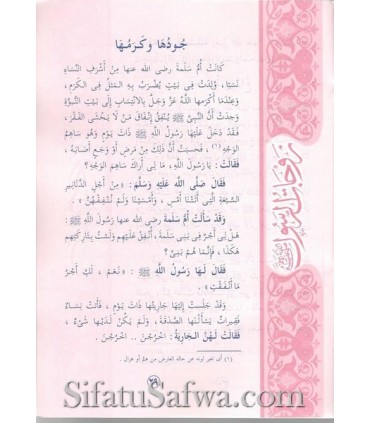 جُودُهَا وَكَرَمُهَا
كَانَتْ أُمُّ سَلَمَةَ رضى الله عنها مِنْ أَشْرَفِ النِّسَاءِ
نَسَبًا ، وُلِدَتْ فِى بَيْتٍ يُضْرَبُ بِهِ الْمَثَلُ فِى الْكَرَمِ ،
وَعِنْدَمَا أَكْرَمَهَا اللَّهُ عَزَّ وَجَلَّ بِالاِنْتِسَابِ إِلَى بَيْتِ النُّبُوَّةِ
وَجَدَتْ أَنَّ النَّبِىَّ ﷺ يُنْفِقُ إِنْفَاقَ مَنْ لاَ يَخْشَى الْفَقْرَ ،
فَقَدْ دَخَلَ عَلَيْهَا رَسُولُ اللَّهِ ﷺ ذَاتَ يَوْمٍ وَهُوَ سَاهِمُ
الْوَجْهِ (١) ، فَحَسِبَتْ أَنَّ ذَلِكَ مِنْ مَرَضٍ أَوْ وَجَعٍ أَصَابَهُ ،
فَقَالَتْ : يَا رَسُولَ اللَّهِ، مَا لِى أَرَاكَ سَاهِمَ الْوَجْهِ ؟
فَقَالَ صَلَّى اللَّهُ عَلَيْهِ وَسَلَّمَ : « مِنْ أَجْلِ الدَّنَانِيرِ
السَّبْعَةِ الَّتِى أَتَتْنَا أَمْسِ ، وَأَمْسَيْنَا وَلَمْ نُنْفِقْهُنَّ » .
وَقَدْ سَأَلَتْ أُمُّ سَلَمَةَ رضى الله عنها رَسُولَ اللَّهِ ﷺ :
هَلْ لِى أَجْرٌ فِى بَنِى سَلَمَةَ ، أُنْفِقُ عَلَيْهِمْ وَلَسْتُ بِتَارِكَتِهِمْ
هَكَذَا ، فَإِنَّمَا هُمْ بَنِىَّ ؟
فَقَالَ لَهَا رَسُولُ اللَّهِ ﷺ : « نَعَمْ ، لَكِ أَجْرُ
مَا أَنْفَقْتِ » .
وَقَدْ جَلَسَتْ إِلَيْهَا جَارِيَتُهَا ذَاتَ يَوْمٍ ، فَأَتَتْ نِسَاءٌ
فَقِيرَاتٌ يَسْأَلْنَهَا الصَّدَقَةَ ، وَلَمْ يَكُنْ لَدَيْهَا شَىْءٌ ،
فَقَالَتْ لَهُنَّ الْجَارِيَةُ : اخْرُجْنَ .. اخْرُجْنَ .
(١) أى تغير لونه عن حاله لعارض من هم أو هزال .
زوجات الرسول
SifatuSafwa.com